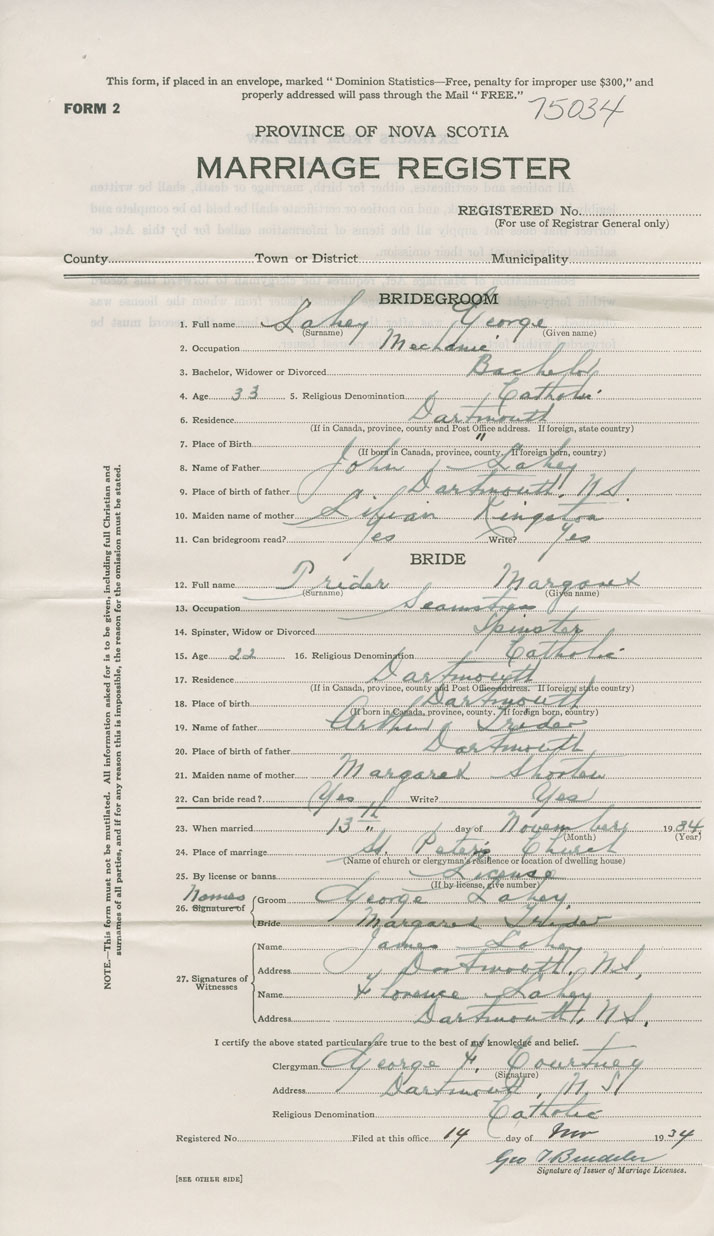 This form, if placed in an envelope, marked " Dominion Statistics—Free, penalty for improper use $300," and
properly addressed will pass through the Mail " FREE."
FORM 2
75034
PROVINCE OF NOVA SCOTIA
MARRIAGE REGISTER
REGISTERED No.
(For use of Registrar General only)
County Town or District Municipality
BRIDEGROOM
1. Full name Lahey George
(Surname) (Given name)
2. Occupation Mechanic
3. Bachelor, Widower or Divorced Bachelor
4. Age 33 5. Religious Denomination Catholic
6. Residence Dartmouth
(If in Canada, province, county and Post Office address. If foreign, state country)
7. Place of Birth "
(If born in Canada, province, county. If foreign born, country)
8. Name of Father John Lahey
9. Place of birth of father Dartmouth, N.S.
10. Maiden name of mother Lilian Kingston
11. Can bridegroom read? Yes Write? Yes
BRIDE
12. Full name Trider Margaret
(Surname) (Given name)
13. Occupation Seamstress
14. Spinster, Widow or Divorced Spinster
15. Age 22 16. Religious Denomination Catholic
17. Residence Dartmouth
(If in Canada, province, county and Post Office address. If foreign, state country)
18. Place of birth Dartmouth
(If born in Canada, province, county. If foreign born, country)
19. Name of father Arthur Trider
20. Place of birth of father Dartmouth
21. Maiden name of mother Margaret
22. Can bride read? Yes Write? Yes
23. When married 13th " day of November 1934
(Month) (Year)
24. Place of marriage St. Peter's Church
(Name of church or clergyman's residence or location of dwelling house)
25. By license or banns License
(If by license, give number)
Names
26. Signature of Groom George Lahey
Bride Margaret Trider
27. Signatures of Witnesses
Name James Lahey
Address Dartmouth, N.S.
Name Florence Lahey
Address Dartmouth, N.S.
I certify the above stated particulars are true to the best of my knowledge and belief.
Clergyman George F. Courtney
(Signature)
Address Dartmouth, N.S
Religious Denomination Catholic
Registered No. Filed at this office 14 day of Nov 1934
Geo
Signature of Issuer of Marriage Licenses.
[SEE OTHER SIDE]
NOTE.—This form must not be mutilated. All information asked for is to be given, including full Christian and
surnames of all parties, and if for any reason this is impossible, the reason for the omission must be stated.